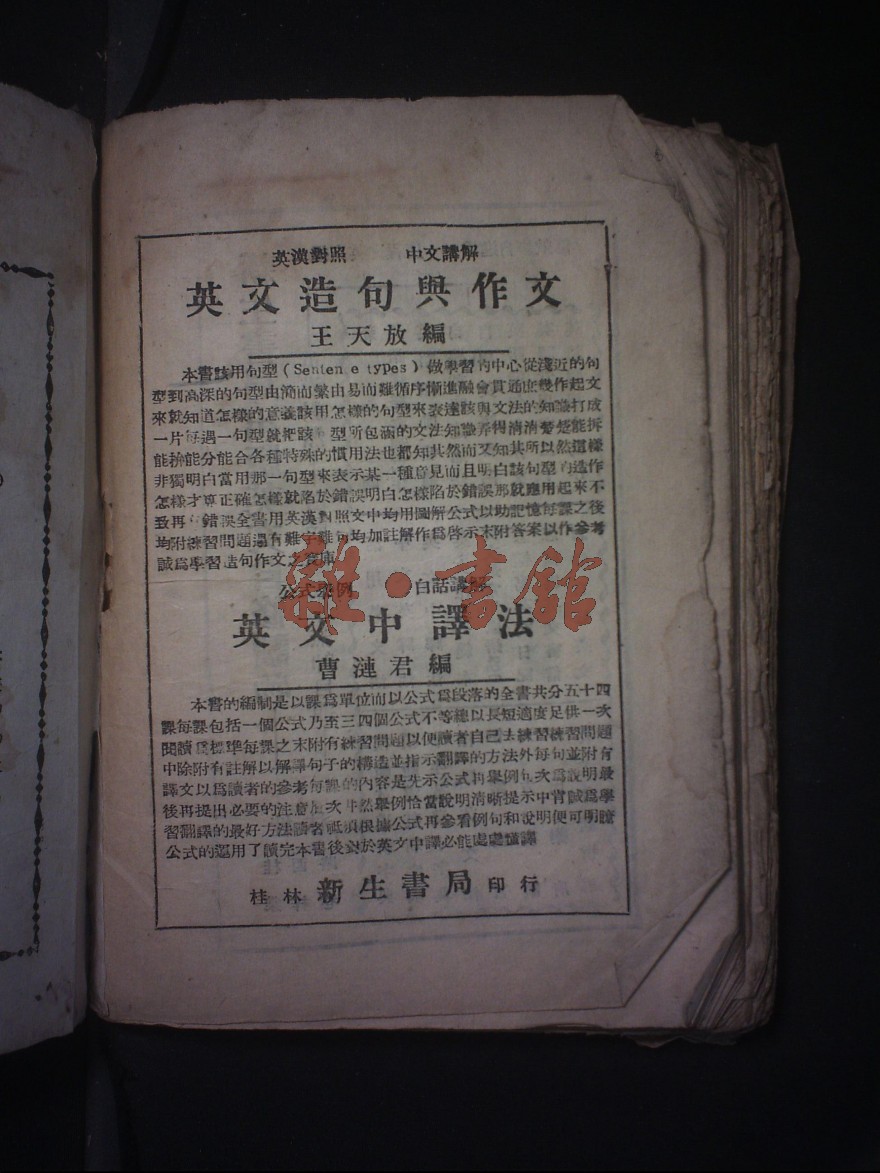 英漢對照 中文講解
英文造句與作文
王天放編
本書該用句型(Senten e types)做學習的中心從淺近的句
型到高深的句型由簡而繁由易而難循序漸進融會貫通庶幾作起文
來就知道怎樣的意義該用怎樣的句型來表達該與文法的知識打成
一片每遇一句型就把該 型所包涵的文法知識弄得清清楚楚能拆
能拚能分能合各種特殊的慣用法也都知其然而又知其所以然這樣
非獨明白當用那一句型來表示某一種意見而且明白該句型的造作
怎樣才算正確怎樣就陷於錯誤明白怎樣陷於錯誤那就應用起來不
致再有錯誤全書用英漢對照文中均用圖解公式以助記憶每課之後
均附練習問題還有難字難句均加註解作爲啓示末附答案以作參考
誠爲學習造句作文之寶庫
公式舉例 白話講解
英文中譯法
曹漣君編
本書的編制是以課爲單位而以公式爲段落的全書共分五十四
課每課包括一個公式乃至三四個公式不等總以長短適度足供一次
閱讀爲標準每課之末附有練習問題以便讀者自己去練習練習問題
中除附有註解以解譯句子的構造並指示翻譯的方法外每句並附有
譯文以爲讀者的參考每課的內容是先示公式再舉例句次爲說明最
後再提出必要的注意層次井然舉例恰當說明清晰提示中肯誠爲學
習翻譯的最好方法讀者祗須根據公式再參看例句和說明便可明瞭
公式的運用了讀完本書後對於英文中譯必能處處懂譯
桂林 新生書局 印行
雜·書館